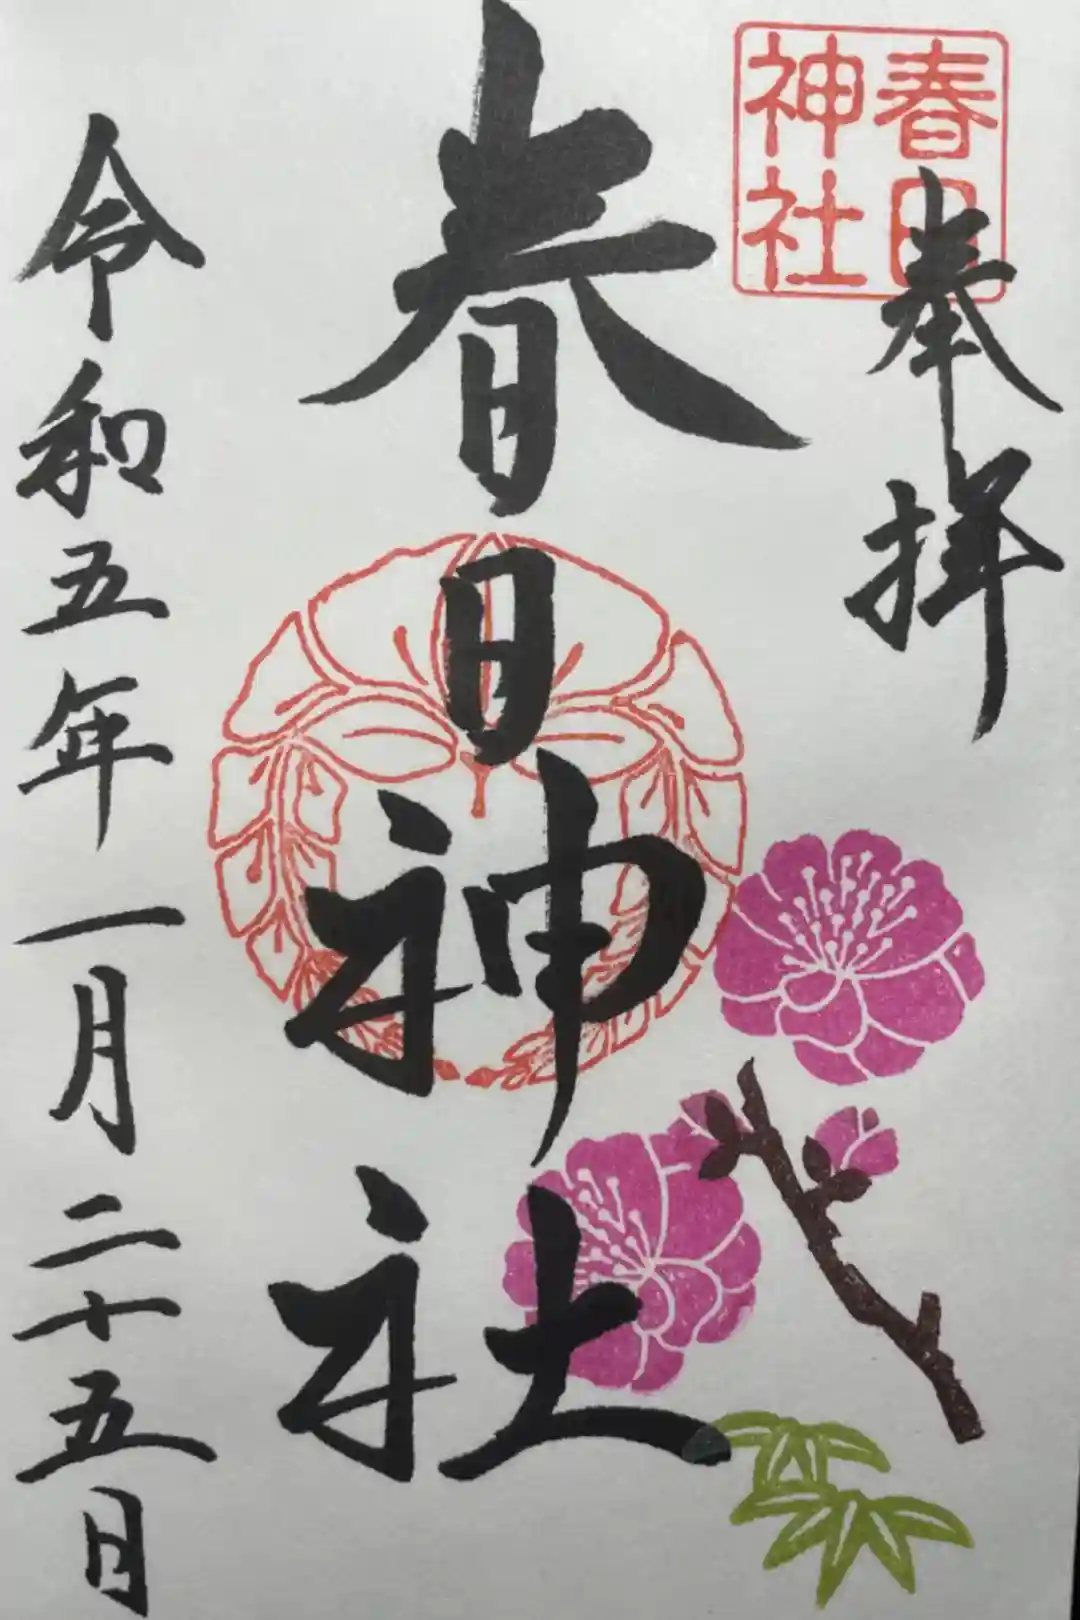 春日
神社
奉拝
春日神社
令和五年一月二十五日